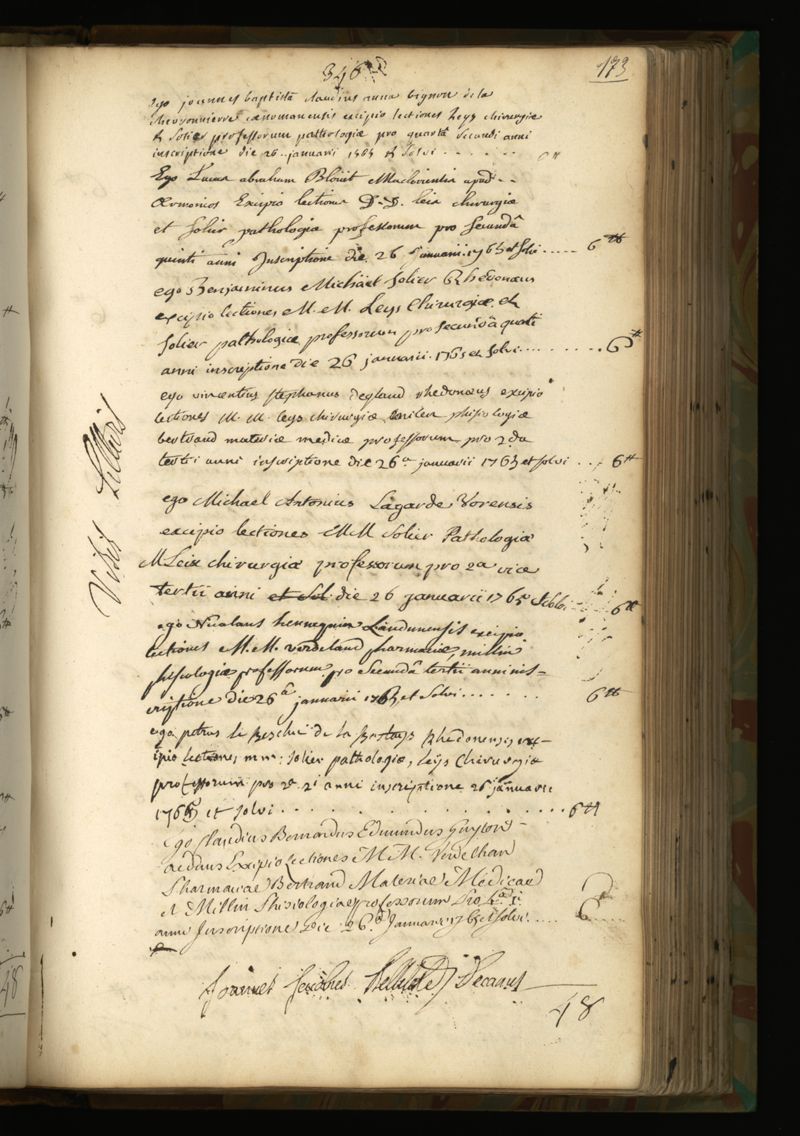 346
173
Ego joannes baptista claudius anna bignon de la
cenomanensis excipio lectiones Leys chirurgiæ
& Solier professorum pathologiæ pro quarta secundi anni
inscriptione die 26 januarii 1765 & Solvi . . . . . .
Ego Lucas abraham Maclovientis apud
Armoricos Excipio lectiones D.D. leis chirurgiæ
et Solier pathologiæ professorum pro secundâ
quinti anni Inscriptione die 26 januarii 1765 et Solvi ..... 6 ₶
ego Benjaminus Michäel Solier Rhedonæus
excipio lectiones M.M. Leys Chirurgiæ, et
Solier pathologiæ professorum pro secundâ quarti
anni inscriptione die 26 januarii 1765 et Solvi ......... 6 ₶
ego vincentius stephanus degland rhedonæus excipio
lectiones M. M. leys chirurgiæ, millin phisiologiæ
bertrand materiæ medicæ professorum pro 2da
tertii anni inscriptione die 26a januarii 1765 et solvi ... 6 ₶
Visis
ego Michael Antonius Lagarde
excipio lectiones MM Solier Pathologiæ
M Leix chirurgiæ professorum pro 2a vice
tertii anni et Sol die 26 januarii 1765 et Solvi 6 ₶
ego Nicolaus hennequin Laudunensis excipio
lectiones M.M. verdelhan pharmaciæ, millin
phisiologiæ professorum pro Secundâ tertii anni inis-
criptione die 26â januarii 1765 et Solvi ....... 6 ₶
ego petrus le de la Rhedonensis exci-
ipio lectiones mm: Solier pathologiæ, leijs Chirurgiæ
professorum pro 2a 2i anni inscriptione 26 januarii
1765 et solvi . . . . . . . . . . . . . . 6 ₶
Ego Claudius Bernardus Edmundus Guyton
aeduus Excipio Lectiones M.M. Verdelhan
Pharmaciae Bertrand Materiae Medicae
et Millin Phisiologiae professorum Pro 4a 1i
anni Inscriptione Die 26a Januarii 1765 et Solvi .... 6
Joannes Jacobus Decanus
48